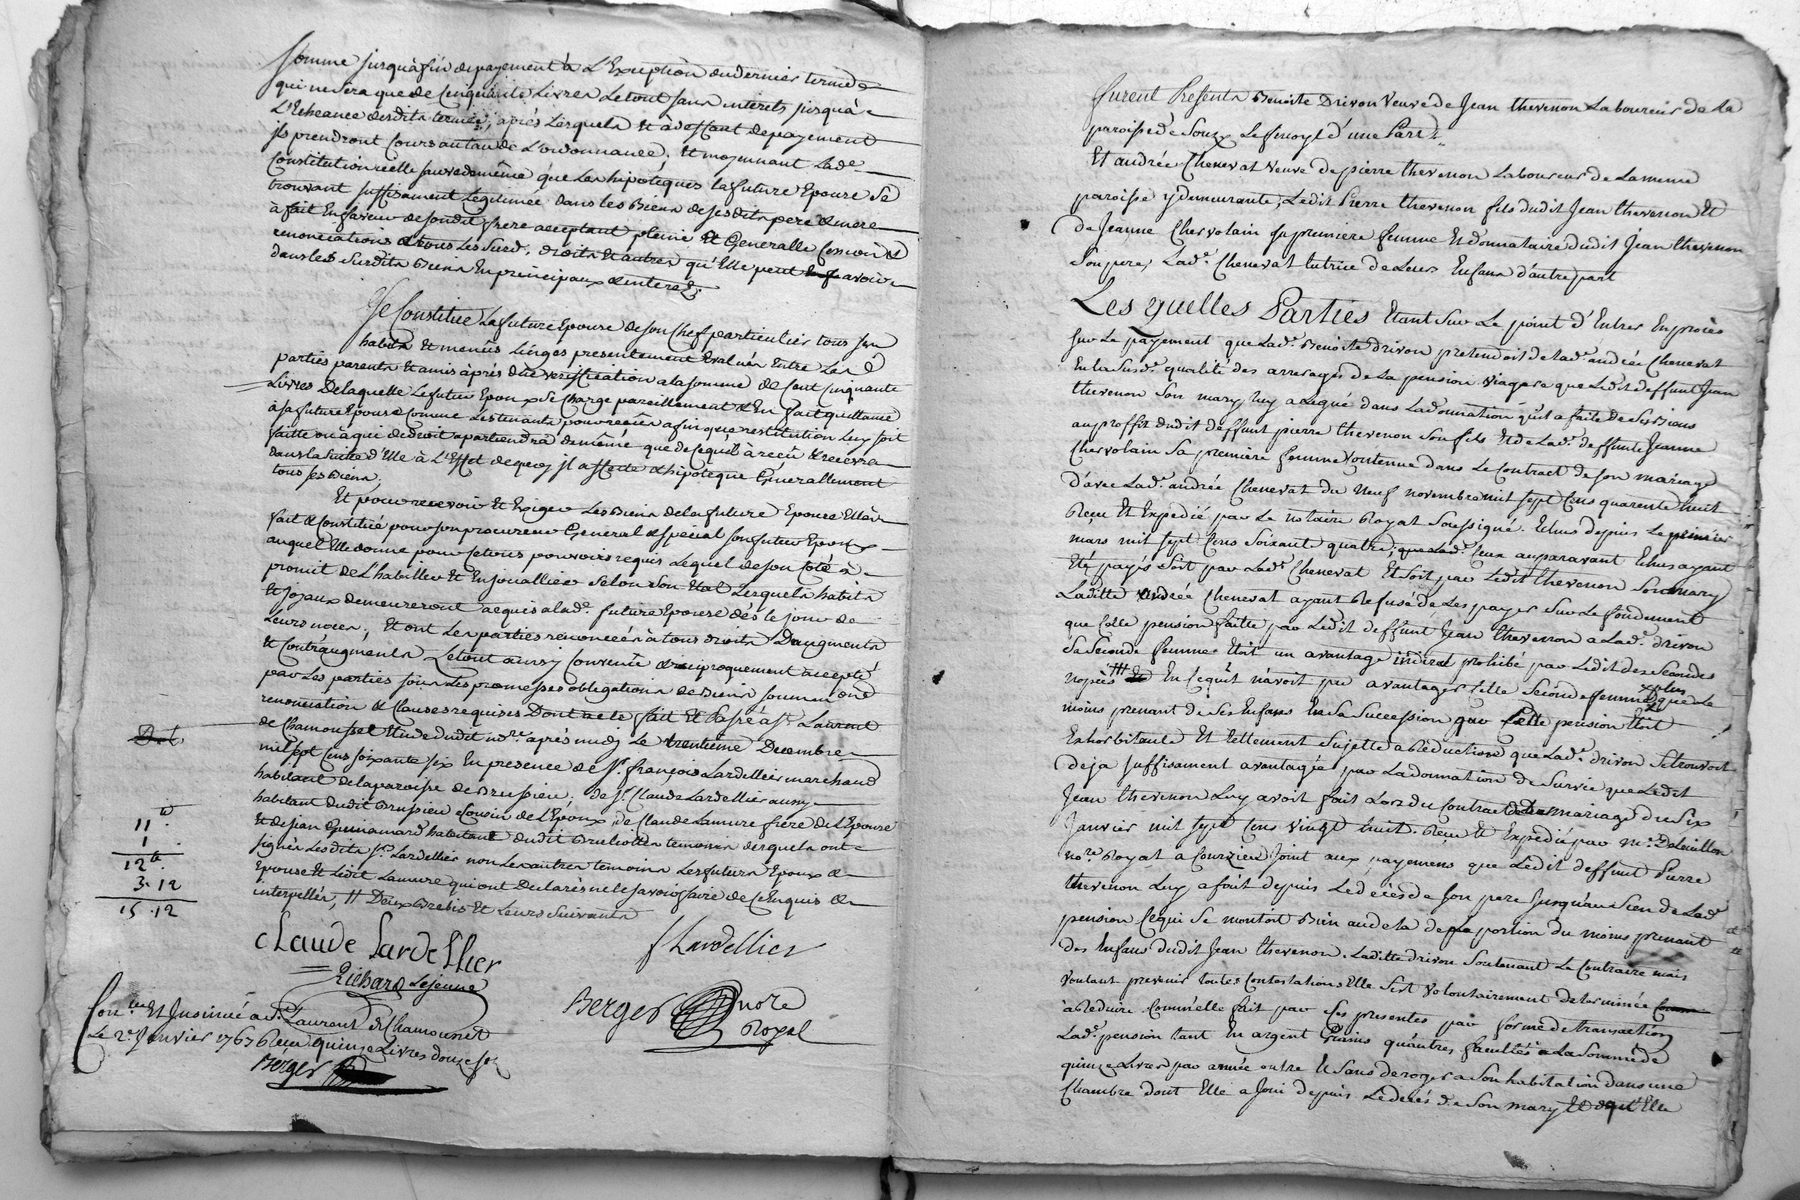 somme jusqu'à fin de payement à L'Exception du dernier terme
qui ne sera que de Cinquante Livres Le tout sans interets jusqu'à
L'Echeance desdits termes, après Lesquels Et à deffaut de payement
ils prendront Cours au taux de L'ordonnance, Et moyennant Lade
Constitution telle que les hipoteques la future Epouse Se
trouvant suffisament Legitimée dans les Biens de sesdits pere & mere
à fait En faveur de sondit frere acceptant pleine Et Generalle Cession &
renonciations & tous Les Surd. droits Et autres qu'Elle peut avoir
dans les Surdits Biens En principaux & interets.
Se Constitue La future Epouse de son Chef particulier tous ses
habits Et menus Linges presentement Evalués Entre Les d
parties parents Et amis après due verification a la somme de Cent cinquante
Livres De laquelle Le futur Epoux Se Charge pareillement & En fait quittance
à sa future Epouse Comme Contents pour recûs afin que restitution Luy soit
faitte ou à qui de droit apartiendra de même que de Ce qu'il à recû & recevra
dans la Suitte d'Elle à L'Effet de quoy il affecte & hipoteque Generallement
tous ses Biens,
Et pour recevoir Et Exiger Les Biens de la future Epouse Elle à
fait & Constitué pour son procureur General & special son futur Epoux
auquel Elle donne pour Ce tous pouvoirs requis Lequel de son Coté à
promit de L'habiller Et Enjoualler Selon Son Etat Lesquels habits
Et Joyaux demeureront acquis a lad.e future Epouse dès le jour de
Leurs noces, Et ont Les parties renoncées à tous droits D'augments
& Contraugments Le tout ainsy Convenû & reciproquement accepté
par Les parties sous Les promesses obligations de Biens soumissions
renonciation & Clauses requises Dont acte fait Et Passé à St Laurent
de Chamousset Etude dudit no.re après midy Le trentieme Decembre
mil sept Cens soixante six En presence de Sr. françois Lardellier marchand
habitant de la paroisse de Brussieu, de Sr. Claude Lardellier aussy
habitant dudit Brussieu Cousin de L'Epoux, de Claude Lamure frere de L'Epouse
Et de Jean Guinamard habitant dudit Brulliolles temoins desquels ont
signés Lesdits Srs. Lardellier non Les autres temoins Les futurs Epoux &
Epouse & Ledit Lamure qui ont Declarés ne le savoir faire de Ce Enquis &
interpellés, # Deux Brebis Et Leurs Suivants
11 ₶
1 .
12 ₶
3 . 12
15 . 12
Claude Lardellier
f Lardellier
Richard Lejeune
Berger nore
Royal
Con.lé Et Insinué à St Laurent de Chamousset
Le 2e Janvier 1767 Recu quinze Livres douze s
Berger
furent Presents Benoite Drivon Veuve de Jean Thevenon Laboureur de la
paroisse de Souzy Lesmoyt d'une Part
Et andrée Chenevat veuve de pierre Thevenon Laboureur de La meme
paroisse y demeurante, Ledit Pierre thevenon fils dudit Jean thevenon Et
de Jeanne Chervolain sa premiere femme Et donnataire dudit Jean thevenon
Son pere, Lad.e Chenevat tutrice de Leurs Enfans d'autre part
Lesquelles Parties Etant Sur Le point d'Entrer En procès
sur Le payement que Lad.e Benoite drivon pretendoit de lad.e andrée Chenevat
En la susd.e qualité des arrerages de La pension viagere que Ledit deffunt Jean
thevenon Son mary Luy a Legué dans La donnation qu'il a faite de Ses Biens
au proffit dudit deffunt pierre thevenon Son fils Et de Lad.e deffunte Jeanne
Chervolain Sa première femme Contenue dans Le Contract de Son mariage
d'avec Lad.e andrée Chenevat du Neuf novembre mil sept Cens quarente huit
Reçu Et Expedié par Le notaire Royal Soussigné, Echus depuis Le premier
mars mil sept Cens Soixante quatre, que Lad.e Ceux auparavant Echus ayant
Eté payés Soit par Lad.e Chenevat Et Soit par Ledit thevenon Son mary
Laditte andrée Chenevat ayant Refusé de Les payer Sur Le fondement
que Cette pension faitte par Ledit deffunt Jean thevenon a Lad.e drivon
Sa Seconde femme Etoit un avantage indirect prohibé par L'edit des Secondes
nopces En Ce qu'il n'avoit pu avantager Cette Seconde femme plus que Le
moins prenant de Ses Enfans En Sa Succession que Cette pension Etoit
Exhorbitante Et tellement Sujette a Reduction que Lad.e drivon Se trouvoit
deja suffisament avantagée par La donnation de Survie que Ledit
Jean thevenon Luy avoit fait Lors du Contract de Leur mariage du Six
Janvier mil sept Cens Vingt huit, Reçu Et Expedié par me. Deluillon
no.re Royal a Courzieu, Joint aux payemens que Ledit deffunt Pierre
thevenon Luy a fait depuis Le décès de Son pere Jusqu'au Sien de Lad.e
pension Ce qui Se montoit Bien au dela de La portion du moins prenant
des Enfans dudit Jean thevenon, Laditte drivon Soutenant Le Contraire mais
Voulant prevenir toutes Contestations Elle S'est Volontairement determinée
à Reduire Comm'elle fait par Ces presentes par forme de transaction
Lad.e pension tant En argent Grains qu'autres facultés a La Somme de
quinze Livres par année outre Et Sans deroger a Son habitation dans une
Chambre dont Elle a Joui depuis Le decés de Son mary Et qu'Elle